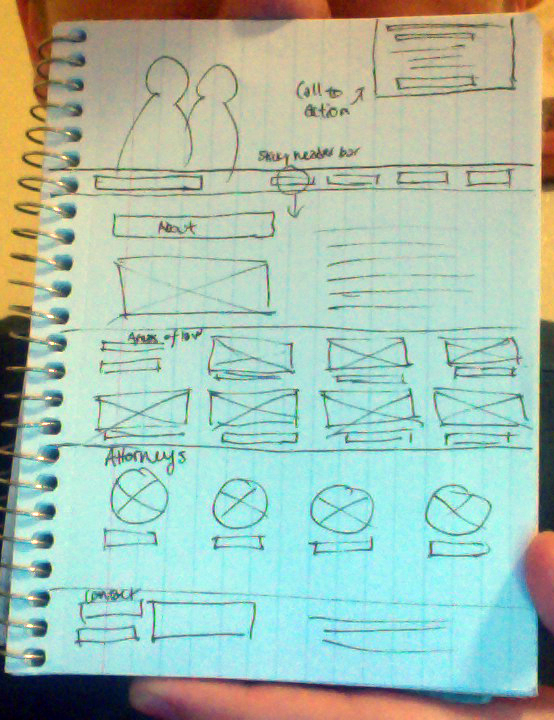 Call to
action
Sticky header bar
About
Areas of law
Attorneys
Contact